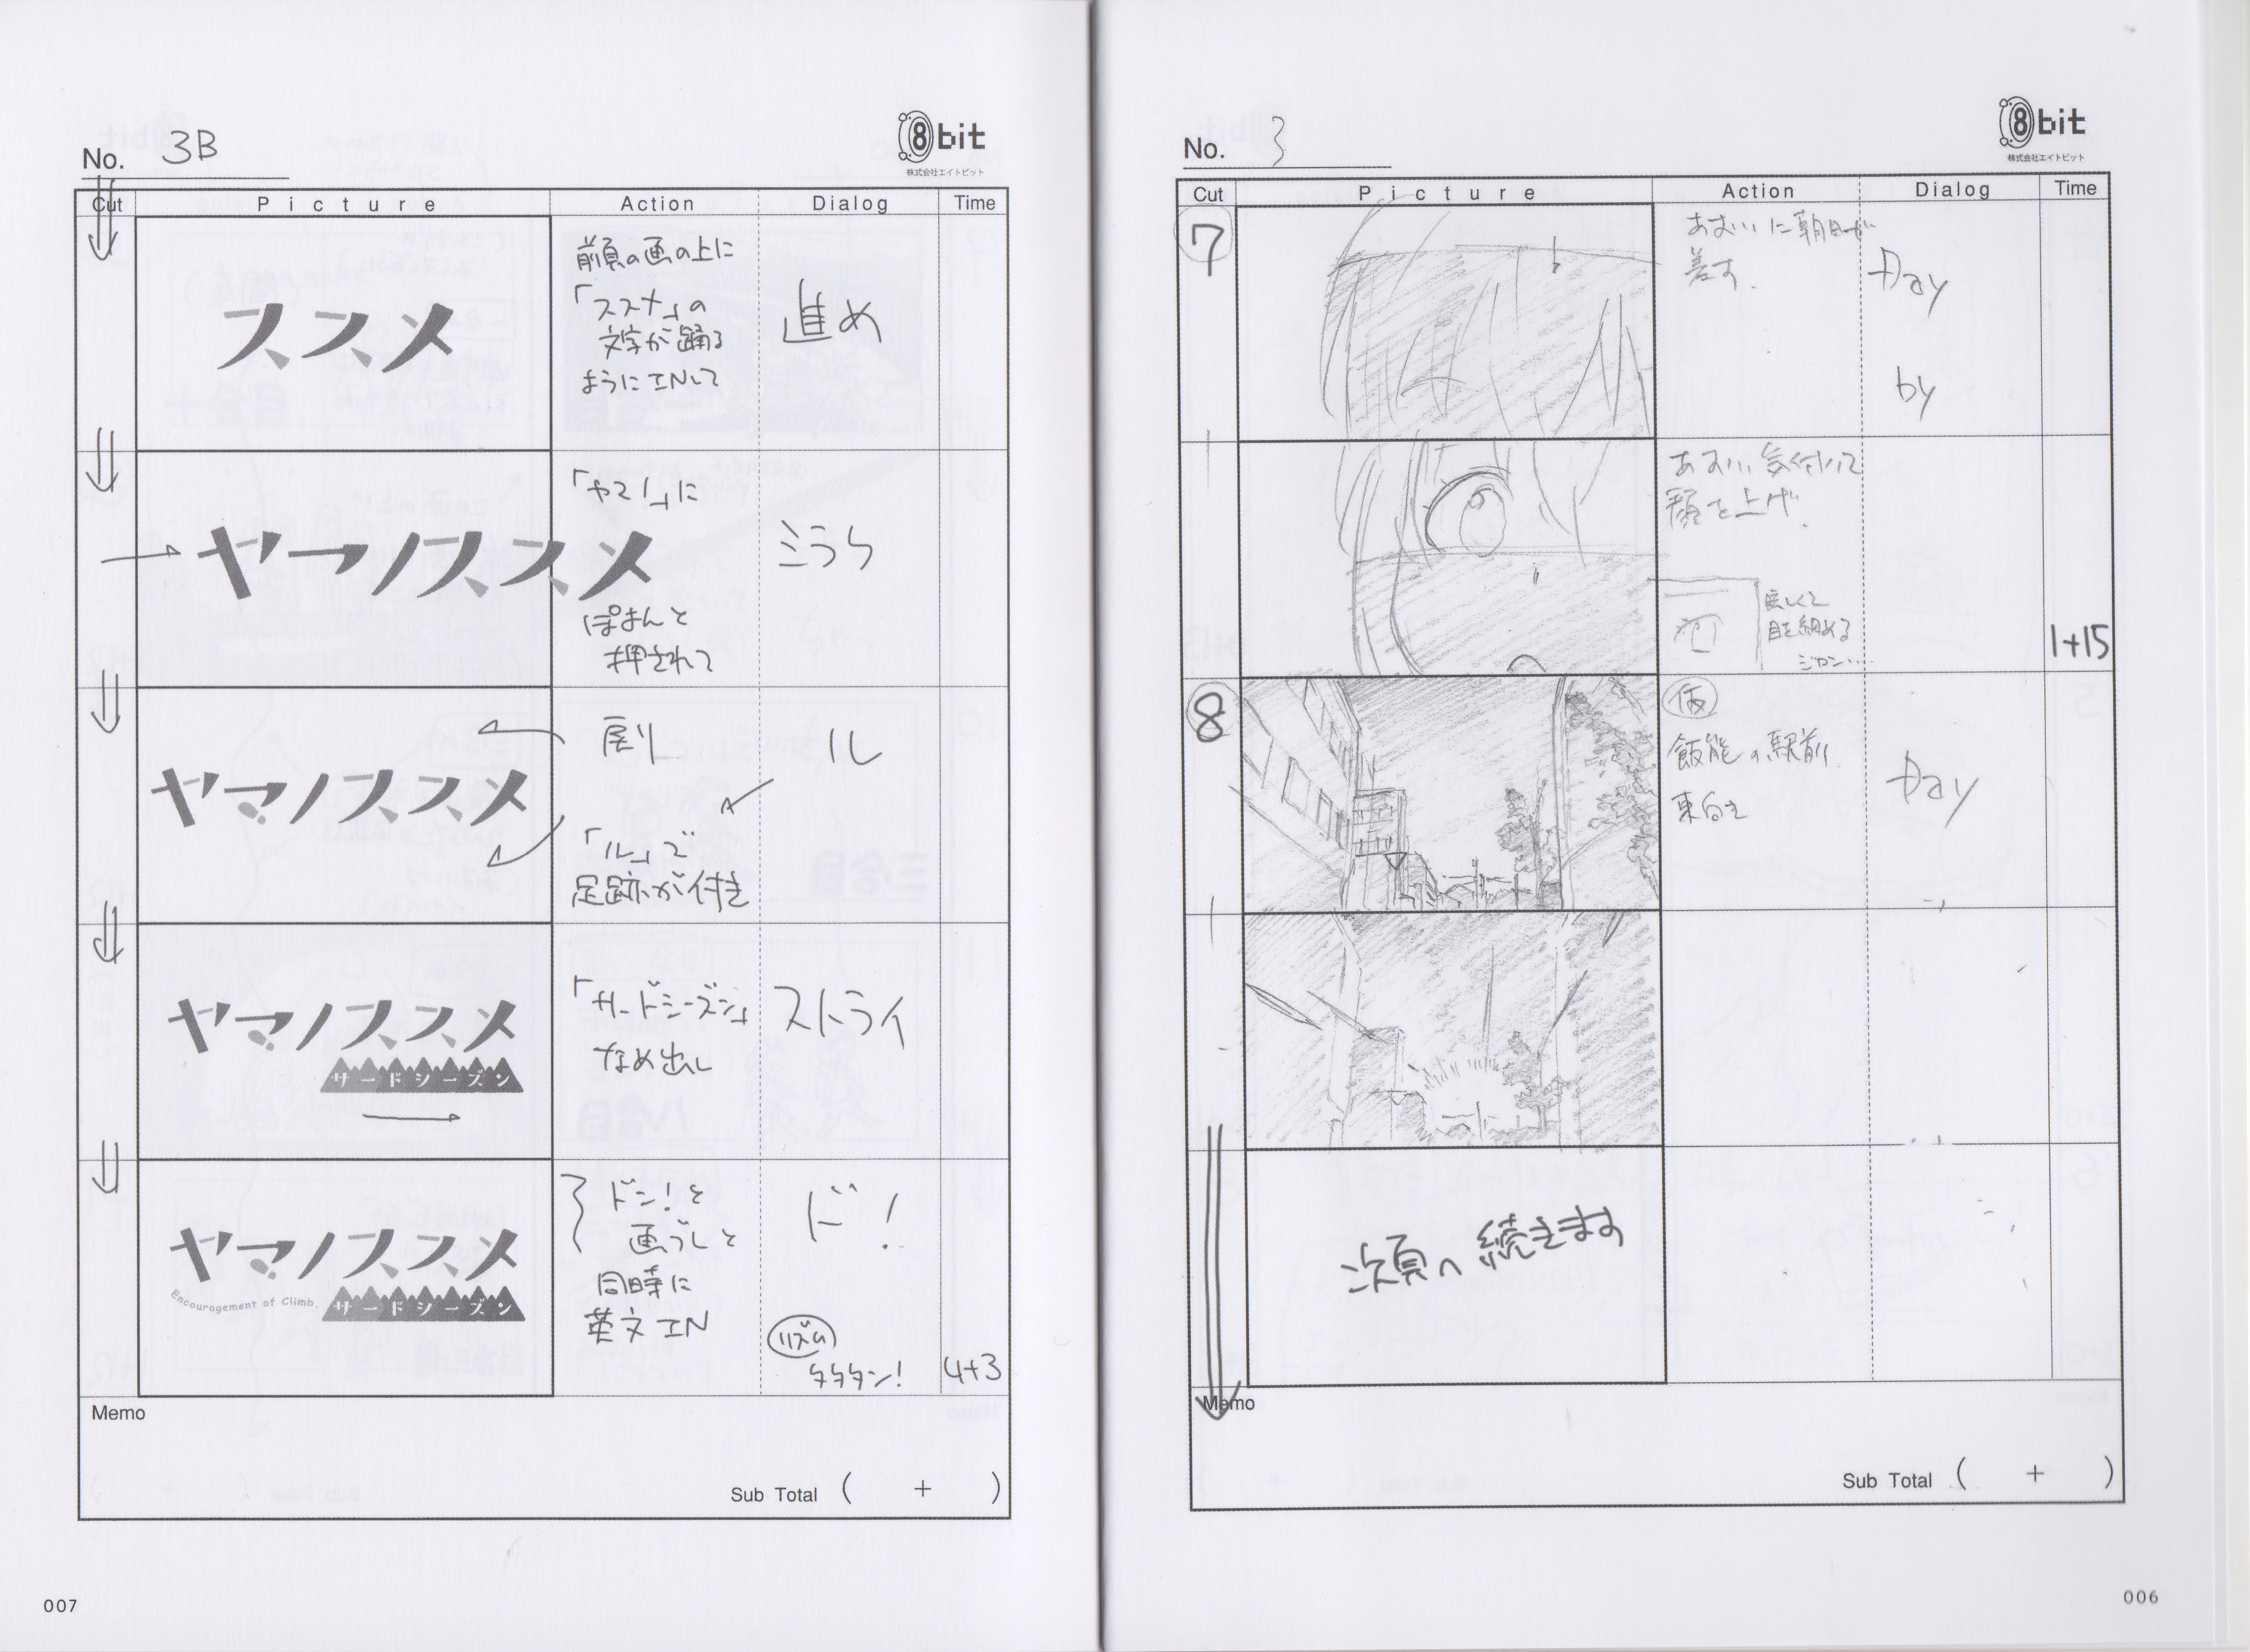 No. 3
8bit
株式会社エイトビット
Cut
Picture
Action
Dialog
Time
7
あおいに朝日が
差す.
Day
by
あおい気付いて
顔を上げ.
眩しくて
目を細める
1+15
8
仮
飯能の駅前
東向き
Day
次頁へ続きます
Memo
Sub Total ( + )
006
No. 3B
8bit
株式会社エイトビット
Cut
Picture
Action
Dialog
Time
ススメ
前頁の画の上に
「ススメ」の
文字が踊る
ようにINして
進め
ヤマノススメ
「ヤマノ」に
ぽよんと
押されて
ミラク
ヤマノススメ
戻り
「ル」で
足跡が付き
ル
ヤマノススメ
サードシーズン
「サードシーズン」
なめ出し
ストライ
ヤマノススメ
Encouragement of Climb.
サードシーズン
ドン!と
画ブレと
同時に
英文IN
ド!
リズム
タタタン!
4+3
Memo
Sub Total ( + )
007